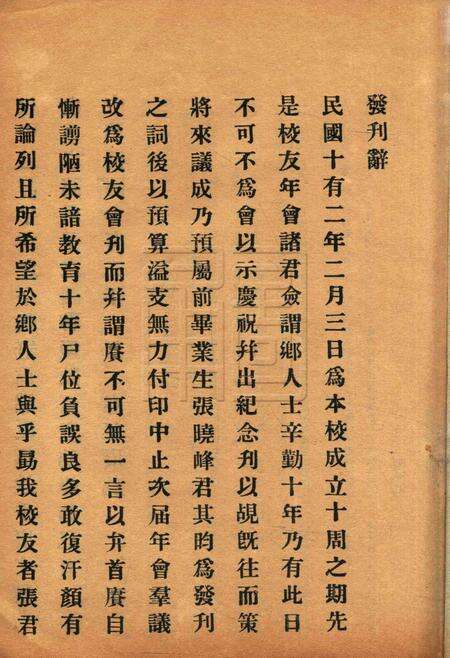 發刊辭
民國十有二年二月三日爲本校成立十周之期先
是校友年會諸君僉謂鄉人士辛勤十年乃有此日
不可不爲會以示慶祝幷出紀念刊以覘旣往而策
將來議成乃預屬前畢業生張曉峰君其昀爲發刊
之詞後以預算溢支無力付印中止次届年會羣議
改爲校友會刊而幷謂賡不可無一言以弁首賡自
慚謭陋未諳教育十年尸位負誤良多敢復汗顏有
所論列且所希望於鄉人士與乎勗我校友者張君